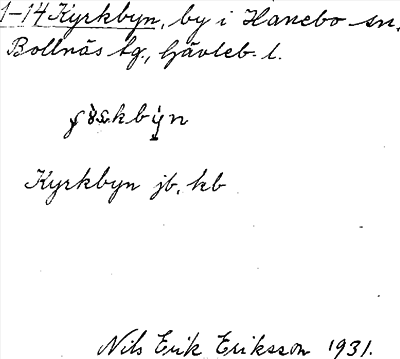 1-14 Kyrkbyn, by i Hanebo sn.
Bollnäs tg., Gävleb. l.
Kyrkbyn jb, kb
Nils Erik Eriksson 1931.